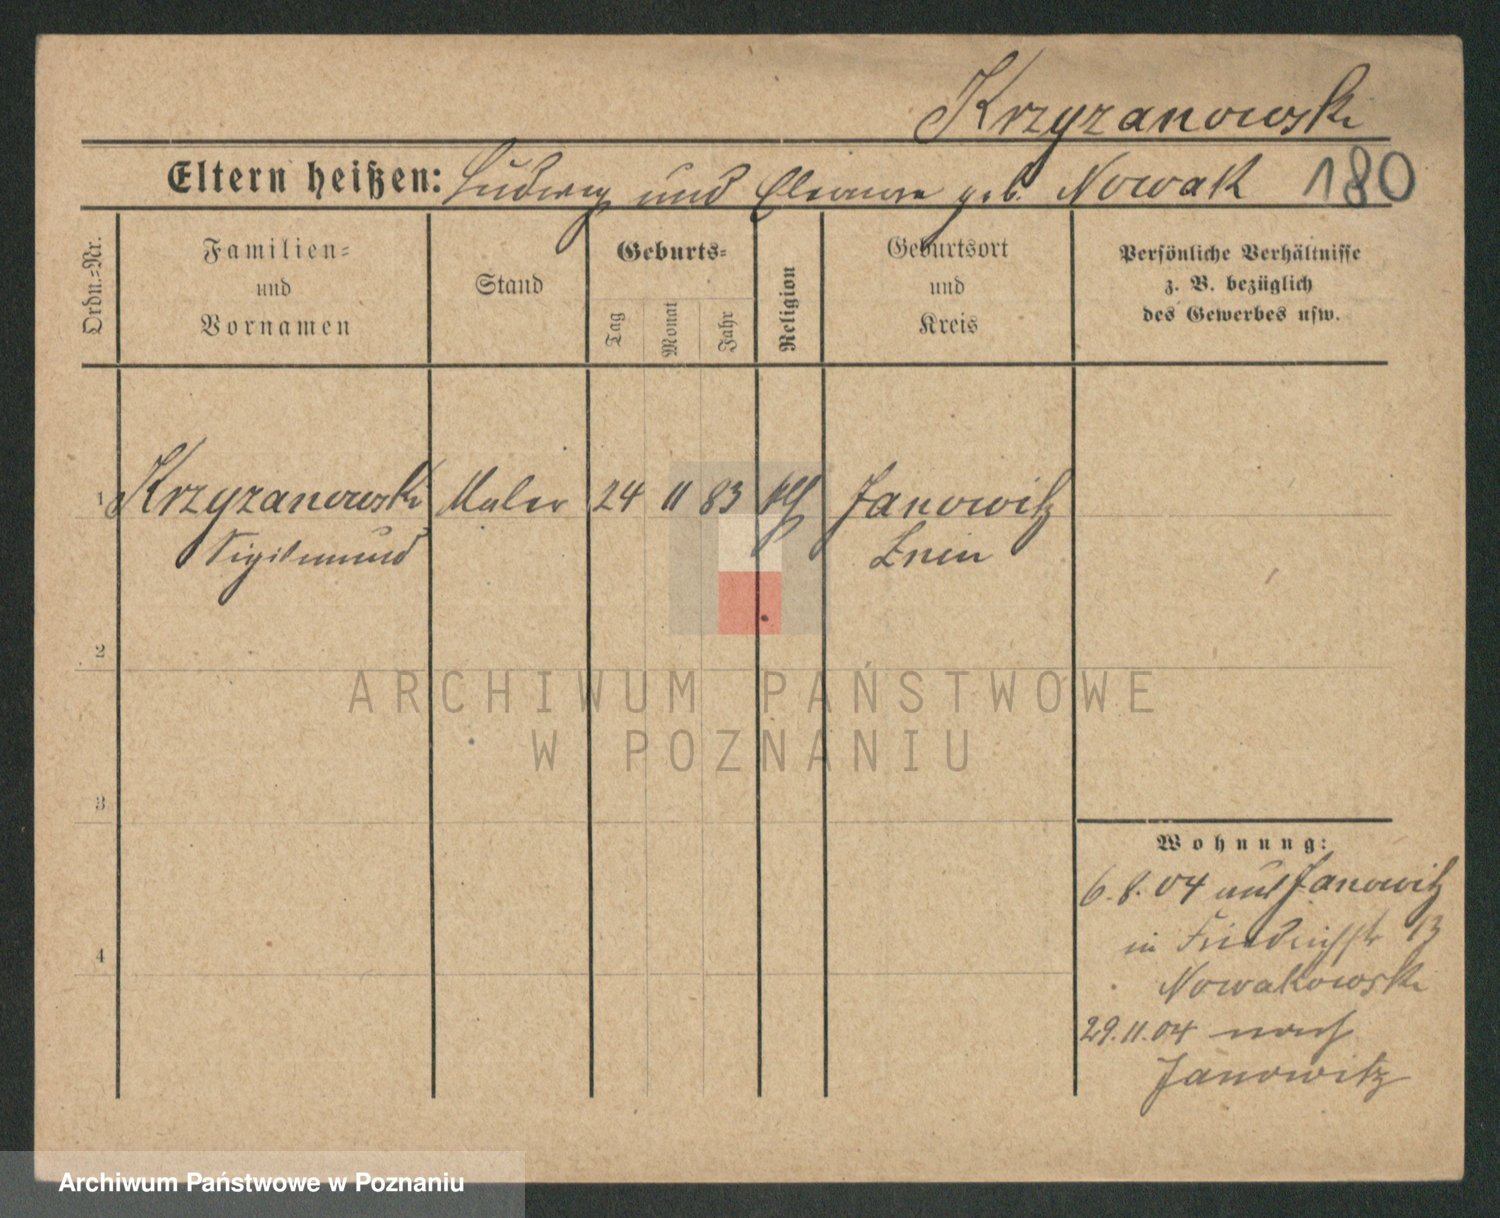 Krzyzanowski
Eltern heißen: Ludwig und Eleonore geb. Nowak 180
Ordn.=Nr.
Familien=
und
Vornamen
Stand
Geburts=
Tag
Monat
Jahr
Religion
Geburtsort
und
Kreis
Persönliche Verhältnisse
z. B. bezüglich
des Gewerbes usw.
1 Krzyzanowski Maler 24 11 83 kth Janowitz
Sigismund Znin
2
ARCHIWUM PAŃSTWOWE
W POZNANIU
3
Wohnung:
6.8.04 aus Janowitz
in Friedrichstr 13
Nowakowski
4
29.11.04 nach
Janowitz
Archiwum Państwowe w Poznaniu